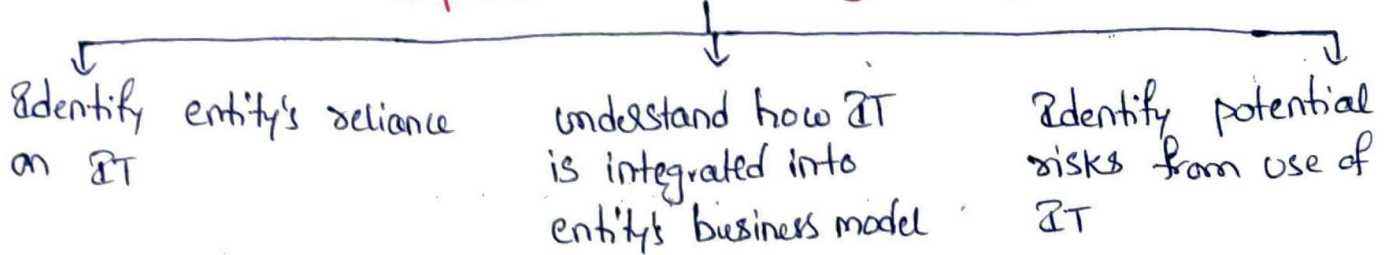 Identify entity's reliance
on IT
understand how IT
is integrated into
entity's business model
Identify potential
risks from use of
IT